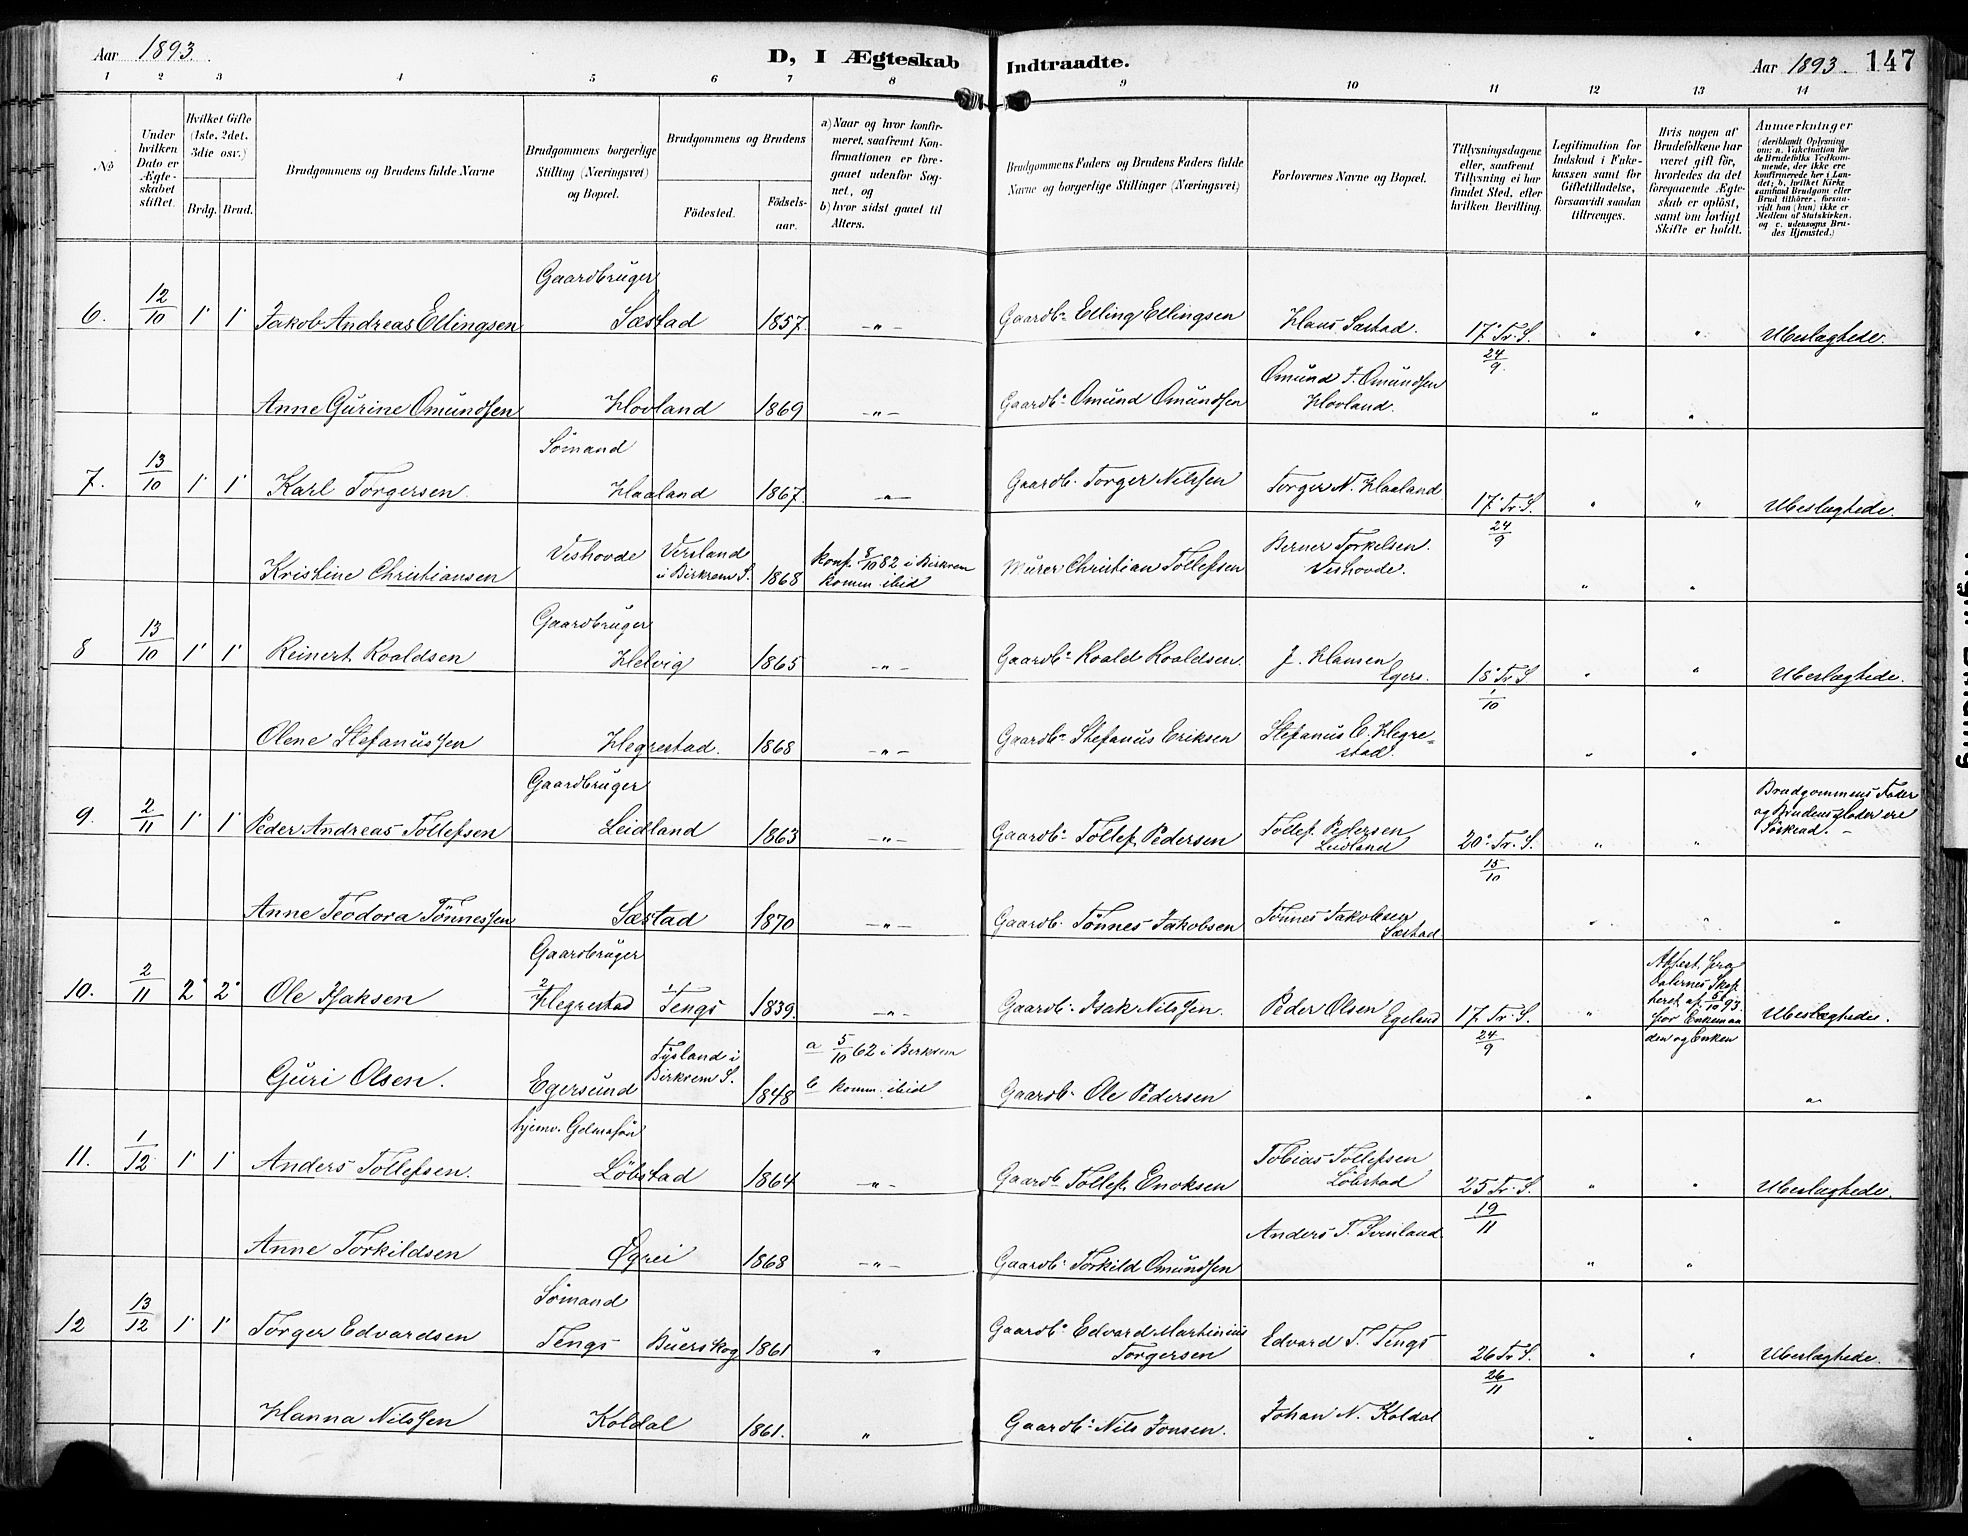 Aar 1893.
D, I Ægteskab Indtraadte.
Aar 1893. 147
1 2 3 4 5 6 7 8 9 10 11 12 13 14
No
Under hvilken Dato er Ægteskabet stiftet.
Hvilket Gifte (1ste, 2det, 3die osv.)
Brdg. Brud.
Brudgommens og Brudens fulde Navne
Brudgommens borgerlige Stilling (Næringsvei) og Bopæl.
Brudgommens og Brudens
Fødested. Fødselsaar.
a) Naar og hvor konfirmeret, saafremt Konfirmationen er foregaaet udenfor Sognet, og
b) hvor sidst gaaet til Alters.
Brudgommens Faders og Brudens Faders fulde Navne og borgerlige Stillinger (Næringsvei)
Forlovernes Navne og Bopæl.
Tillysningsdagene eller, saafremt Tillysning ei har fundet Sted, efter hvilken Bevilling.
Legitimation for Indskud i Enkekassen samt for Giftetilladelse, forsaavidt saadan tiltrænges.
Hvis nogen af Brudefolkene har været gift før, hvorledes da det foregaaende Ægteskab er opløst, samt om lovligt Skifte er holdt.
Anmærkninger
(deriblandt Oplysning om: a. Vakcination for de Brudefolks Vedkommende, der ikke ere konfirmerede her i Landet; b. hvilket Kirkesamfund Brudgom eller Brud tilhører, forsaavidt han (hun) ikke er Medlem af Statskirken, og c. udensogns Brudes Hjemsted.)
Gaardbruger
6. 12/10 1' 1' Jakob Andreas Ellingsen Sæstad 1857. —"— Gaardb. Elling Ellingsen Hans Sæstad. 17. Tr. S. 24/9. " " Ubeslægtede.
Anne Gurine Omundsen Hovland 1869 —"— Gaardb. Omund Omundsen Omund T. Omundsen Hovland. " "
Sömand
7. 13/10 1' 1' Karl Torgersen Haaland 1867. —"— Gaardb. Torger Nilssen Torger N. Haaland 17. Tr. S. 24/9 " " Ubeslægtede.
Kristine Christiansen Veshovde Versland i Birkrem S. 1868 konf. 8/10 82 i Birkrem komm. ibid Murer Christian Tollefsen Berner Torkelsen. Veshovde. " "
Gaardbruger
8 13/10 1' 1' Reinert Roaldsen Helvig 1865 —"— Gaardb. Roald Roaldsen. J. Hansen Egers. 18. Tr. S. 1/10 " " Ubeslægtede.
Olene Stefanussen Hegrestad. 1868 —"— Gaardb. Stefanus Eriksen Stefanus E. Hegrestad. " "
Gaardbruger
9. 2/11 1' 1' Peder Andreas Tollefsen Leidland 1863 —"— Gaardb. Tollef Pedersen Tollef Pedersen Leidland 20. Tr. S. 15/10 " " Brudgommens Fader og Brudens Moder ere Söskend.
Anne Teodora Tönnessen Sæstad 1870 —"— Gaardb. Tönnes Jakobsen Tönnes Jakobsen Sæstad " " "
Gaardbruger
10. 2/11 2' 2' Ole Isaksen Hegrestad Tengs 1839. —"— Gaardb. Isak Nilssen. Peder Olsen Egeland 17. Tr. S. 24/9 " Attest fra Dalernes Skifteret af 5/10 93. for Enkemanden og Enken Ubeslægtede.
Guri Olsen. Egersund Tysland i Birkrem S. 1848 a 5/10 62 i Birkrem b komm. ibid Gaardb. Ole Pedersen " "
hjemv.
11. 1/12 1' 1' Anders Tollefsen. Löbstad 1864 —"— Gaardb. Tollef Enoksen Tobias Tollefsen Löbstad 25 Tr. S. 19/11 " " Ubeslægtede.
Anne Torkildsen Øgrei 1868 —"— Gaardb. Torkild Omundsen Anders T. Svinland " "
Sömand
12 13/12 1' 1' Torger Edvardsen Tengs Buerskog 1861 " Gaardb. Edvard Martinius Torgersen Edvard T. Tengs 26 Tr. S. 26/11 " " Ubeslægtede.
Hanna Nilssen Koldal 1861. " Gaardb. Nils Jonsen. Johan N. Koldal " "